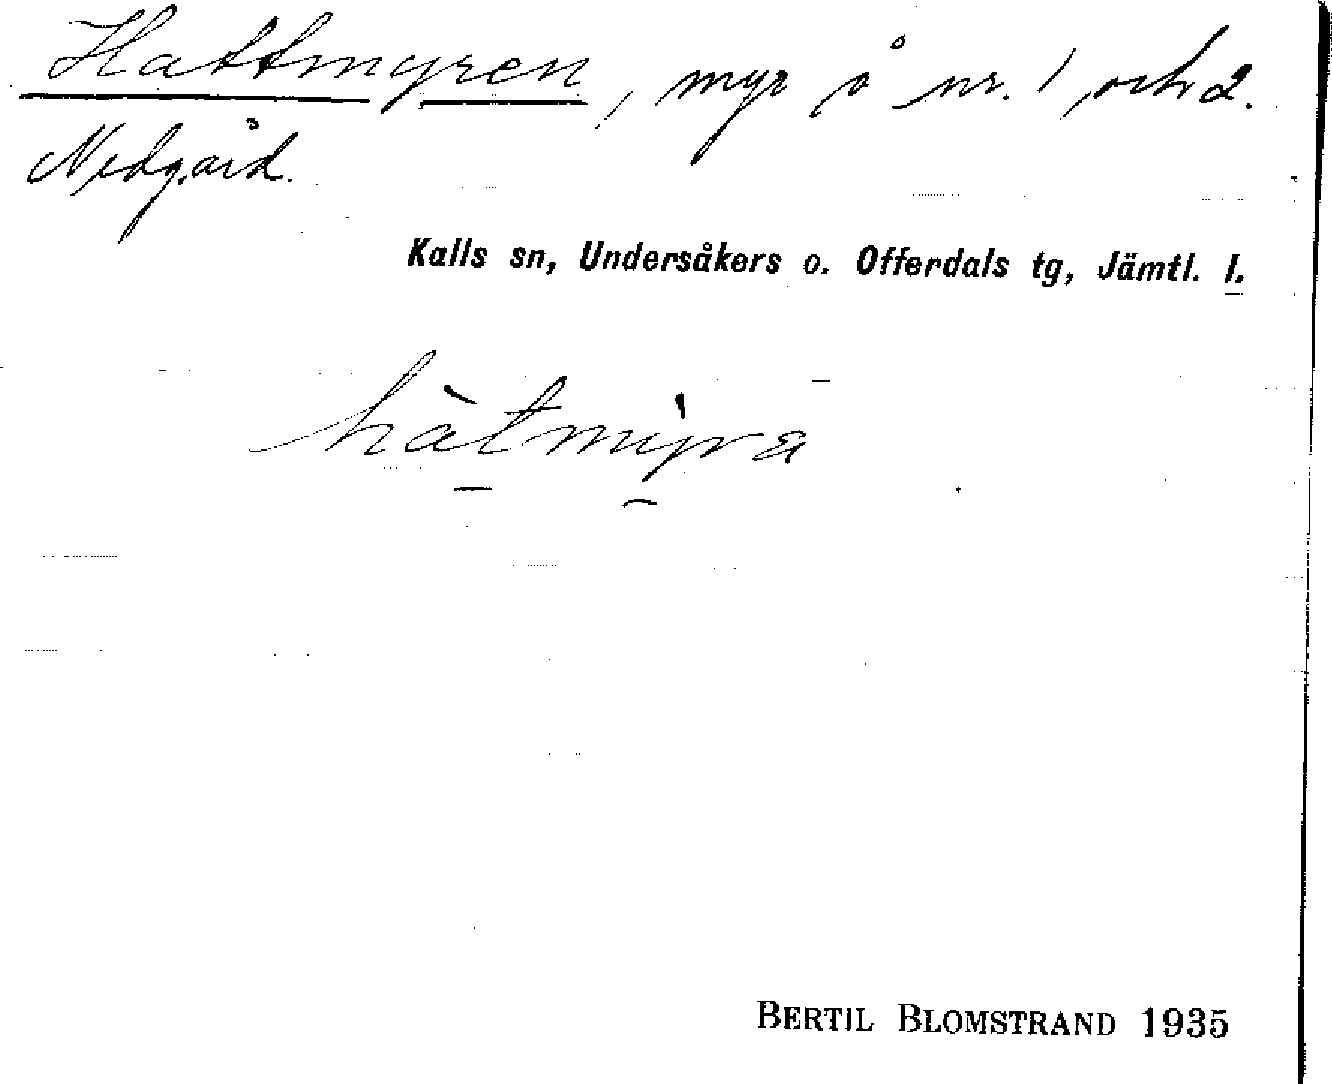 Hattmyren, myr å nr. 1 och 2.
Nedgård.
Kalls sn, Undersåkers o. Offerdals tg, Jämtl. l.
hàtmýra
BERTIL BLOMSTRAND 1935